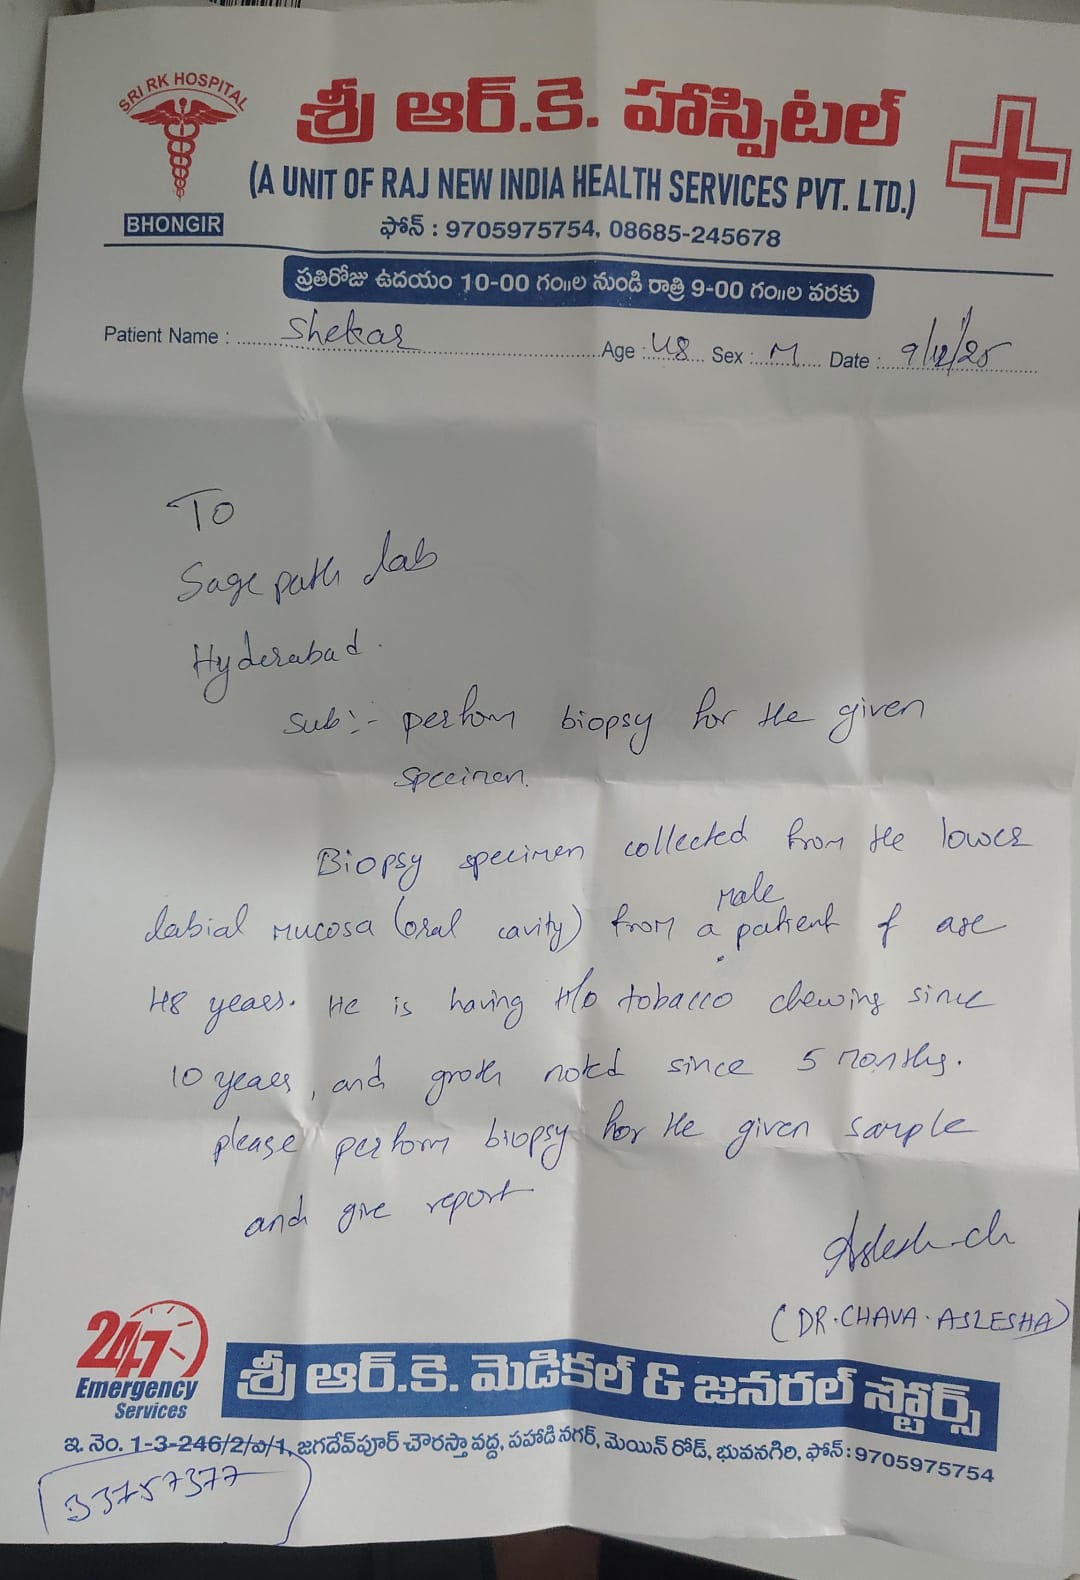 SRI RK HOSPITAL
BHONGIR
శ్రీ ఆర్.కె. హాస్పిటల్
(A UNIT OF RAJ NEW INDIA HEALTH SERVICES PVT. LTD.)
ఫోన్ : 9705975754, 08685-245678
ప్రతిరోజు ఉదయం 10-00 గం॥ల నుండి రాత్రి 9-00 గం॥ల వరకు
Patient Name : Shekar Age : 48 Sex : M Date : 9/12/25
To
Sage path lab
Hyderabad.
Sub:- perform biopsy for the given
specimen.
Biopsy specimen collected from the lower
labial mucosa (oral cavity) from a male patient of age
48 years. He is having H/o tobacco chewing since
10 years, and groth noted since 5 months.
please perform biopsy for the given sample
and give report
Aslesh-ch
(DR. CHAVA. ASLESHA)
24/7
Emergency
Services
శ్రీ ఆర్.కె. మెడికల్ & జనరల్ స్టోర్స్
ఇ. నెం. 1-3-246/2/ఎ/1, జగదేవ్‌పూర్ చౌరస్తా వద్ద, పహాడి నగర్, మెయిన్ రోడ్, భువనగిరి, ఫోన్ : 9705975754
33757377